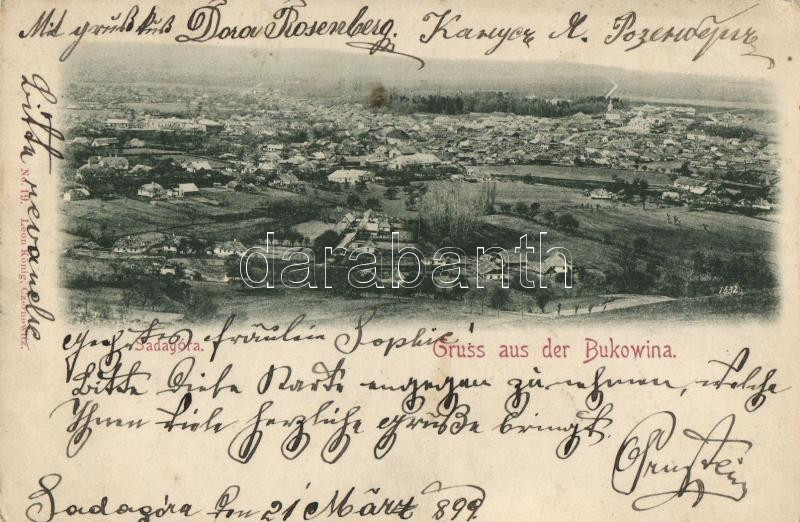 Mit gruß Kuß Dora Rosenberg. Кап Я. Розенбергъ
Bitte revanche
No. 19. Leon König, Czernowitz.
darabanth
1832
Sadagóra. Gruss aus der Bukowina.
fräulein Sophie!
Bitte Diese Karte engegen zu nehmen, welche
Ihnen viele herzliche grüße bringt.
Sadagóra den 21 März 899